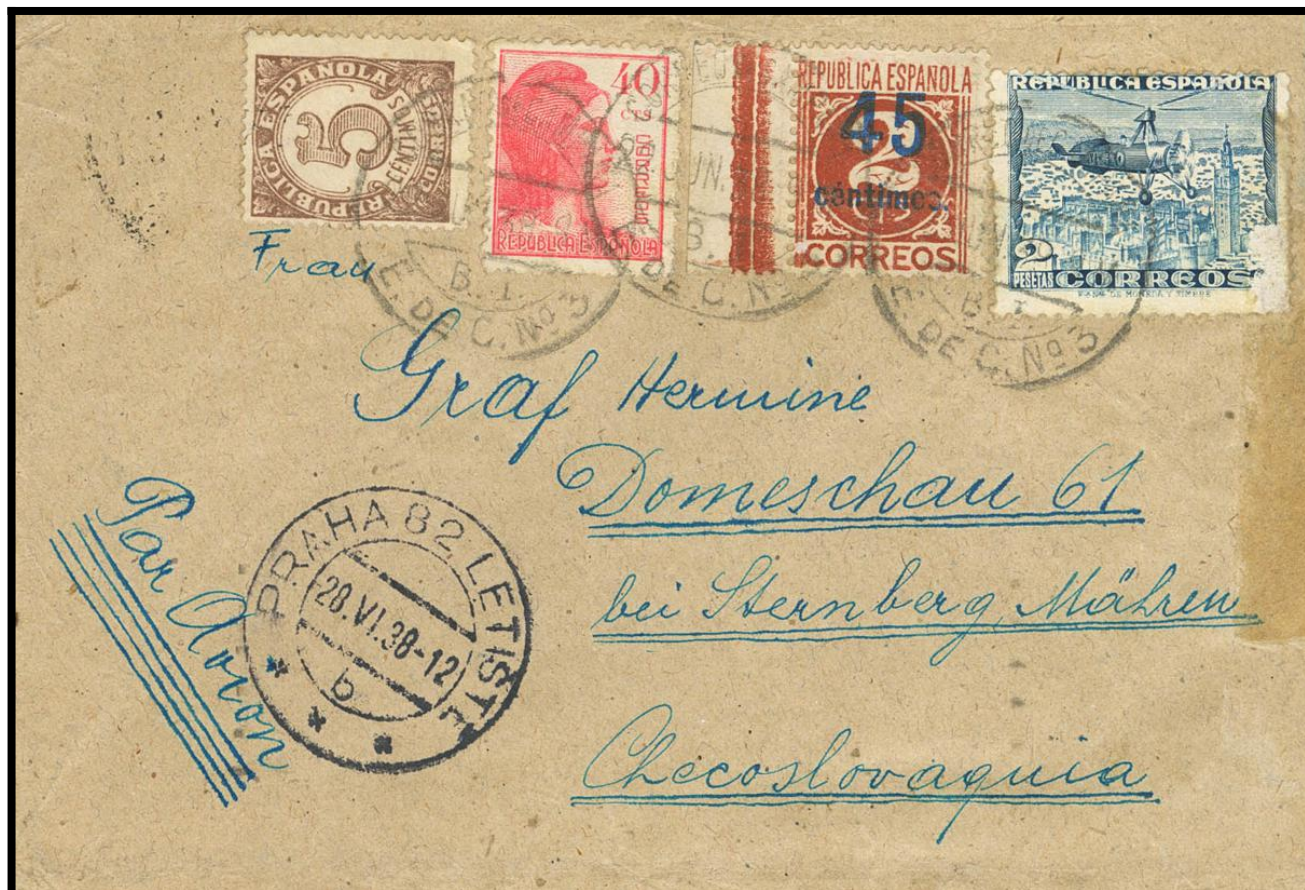 REPUBLICA ESPAÑOLA
5
CENTIMOS
CORREOS
40
CTS
CORREOS
REPUBLICA ESPAÑOLA
REPUBLICA ESPAÑOLA
45
2
céntimos.
CORREOS
REPUBLICA ESPAÑOLA
2
PESETAS
CORREOS
B. I.
E. DE C. Nº 3
JUN.
B.
DE C. Nº
B. I.
DE C. Nº 3
Frau
Graf Hermine
Domeschau 61
bei Sternberg, Mähren
Checoslovaquia
Par Avion
PRAHA 82 LETIŠTĚ
28.VI.38-12
b